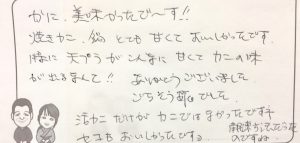 かに、美味かったで〜す!!
焼きカニ、鍋 とても 甘くて おいしかったです。
特に 天プラが こんなに 甘くて カニの味
が出るなんて!! ありがとうございました。
ごちそう様でした。
活カニ だけが カニではなかったですネ
セコも おいしかったです。